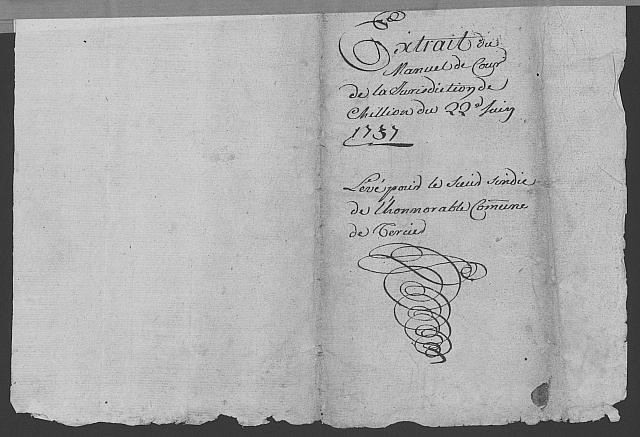 Extrait du
Manuel de Cour
de la Jurisdiction de
Chillion du 22.d Juin
1737
Levé pour le Sieur Sindic
de L'honnorable Comune
de Tercier